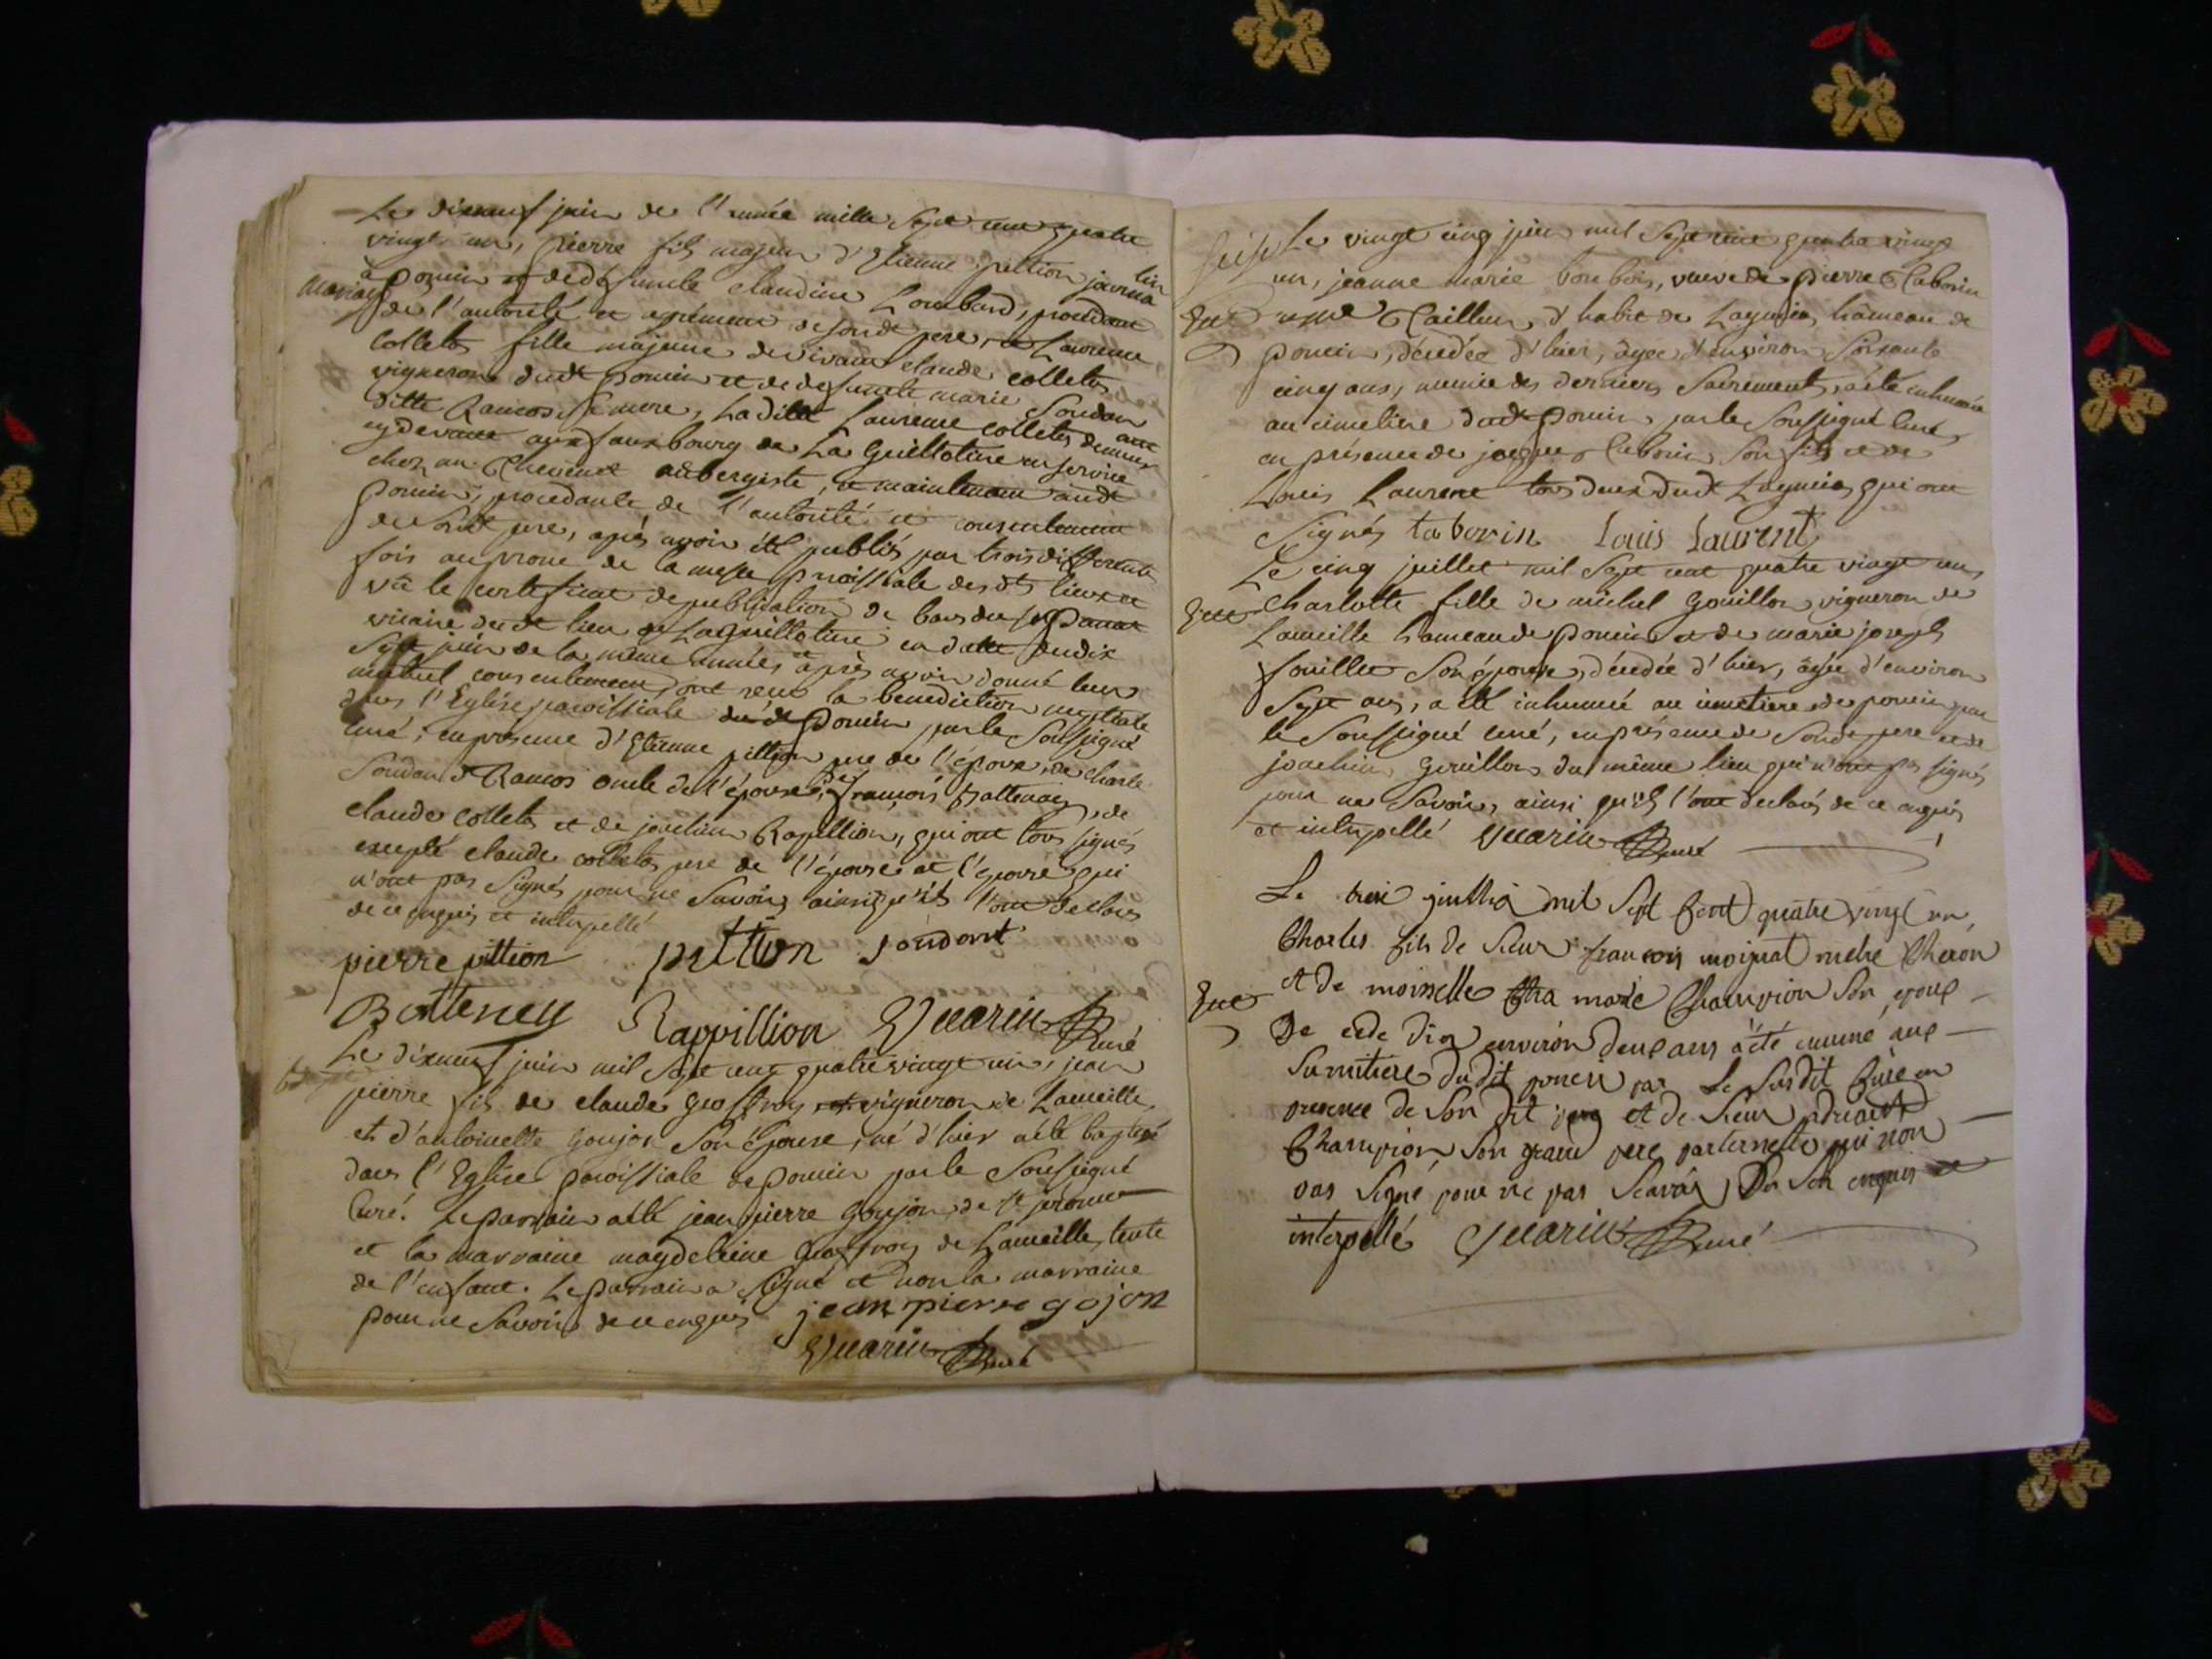 Le dixneuf juin de l'année mille sept cent quatre
vingt un, pierre fils majeur d'Etienne pittion journalier
mariage
à poncin et de défunte claudine Lombard, procédant
de l'autorité et agrément de son dt pere, et Laurence
Colletas fille majeure de vivant claude colletas
vigneron dudt poncin et de defunte marie Soudan
ditte Rancos sa mere, La ditte Laurence colletas demeurant
cy devant au fauxbourg de La Guillotine en service
chez un aubergiste, et maintenant audt
poncin, procedante de l'autorité et consentement
de sondt pere, après avoir été publiés par trois differentes
fois au prone de la messe paroissiale desdts lieux et
vû le certificat de publication de bans du sr
vicaire dudt lieu de La guillotine en datte du dix
sept juin de la même année, après avoir donné leur
mutuel consentement, ont reçu la benediction nuptiale
dans l'Eglise paroissiale dudt poncin par le Soussigné
curé, en presence d'Etienne pittion pere de l'époux, de charle
Soudan dt Rancos oncle de l'épouse, de françois Battenay, de
claude colletas et de joachim Rapillion, qui ont tous signés
excepté claude colletas pere de l'épouse et l'épouse qui
n'ont pas signés pour ne savoir ainsi qu'ils l'ont declarés
de ce enquis et interpellé
pierre pittion pittion soudant
Batteney Rappillion Vuarin curé
Le dixneuf juin mil sept cent quatre vingt un, jean
pierre fils de claude Geoffroy vigneron de Lameille
et d'antoinette Goujon son épouse, né d'hier a été baptisé
dans l'Eglise paroissiale de poncin par le Soussigné
Curé. Le parrain a été jean pierre Goujon de st jerome
et la marraine magdeleine Geoffroy de Lameille, tente
de l'enfant. Le parrain a signé et non la marraine
pour ne savoir de ce enquis jean pierre gojon
Vuarin curé
Le vingt cinq juin mil sept cent quatre vingt
un, jeanne marie bonbois, veuve de pierre Taborin
Tailleur, d'habit de Lagnieu, hâmeau de
poncin, décédée d'hier, âgée d'environ soixante
cinq ans, munie des derniers Sacrements, a été inhumée
au cimetiere dudt poncin, par le Soussigné Curé
en présence de jacques Taborin son fils et de
Louis Laurent tous deux dudt qui ont
signés taborin Louis Laurent
Le cinq juillet mil sept cent quatre vingt un,
Charlotte fille de michel Gouillon vigneron de
Lameille hameau de poncin et de marie joseph
fouillet son épouse, décédée d'hier, âgée d'environ
sept ans, a été inhumé au cimetiere de poncin par
le Soussigné curé, en présence de sondt pere et de
joachim Gouillon du même lieu qui n'ont pas signés
pour ne savoir, ainsi qu'ils l'ont declarés de ce enquis
et interpellé Vuarin curé
Le juillia mil sept cent quatre vingt un
Charles fils de sieur francois moignat
et de moiselle marie Champion son epouse
De cede dier environ deux ans a été enumé aux
sumitiere dudit poncin par Le susdit Curé en
presence de son dit pere et de sieur
Champion son grand pere parternelle qui non
pas signé pour ne pas scavoir De sen enquis et
interpellé Vuarin curé